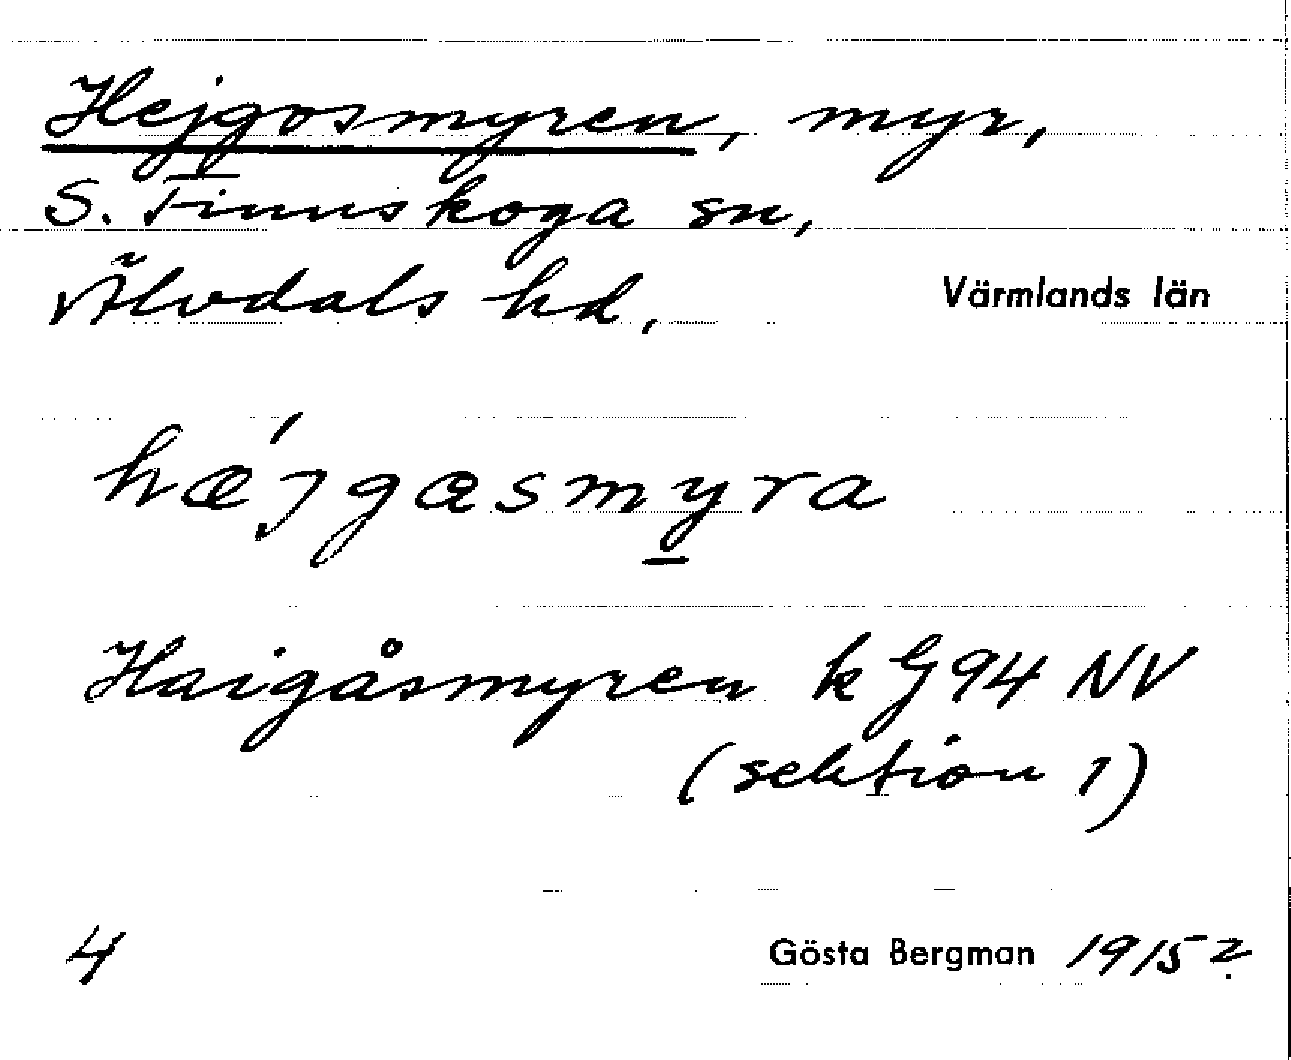 Hejgosmyren, myr,
S. Finnskoga sn,
Älvdals hd,
Värmlands län
hǽjgɶsmy̱ra
Haigåsmyren k G94 NV
(sektion 1)
4
Gösta Bergman 1915?